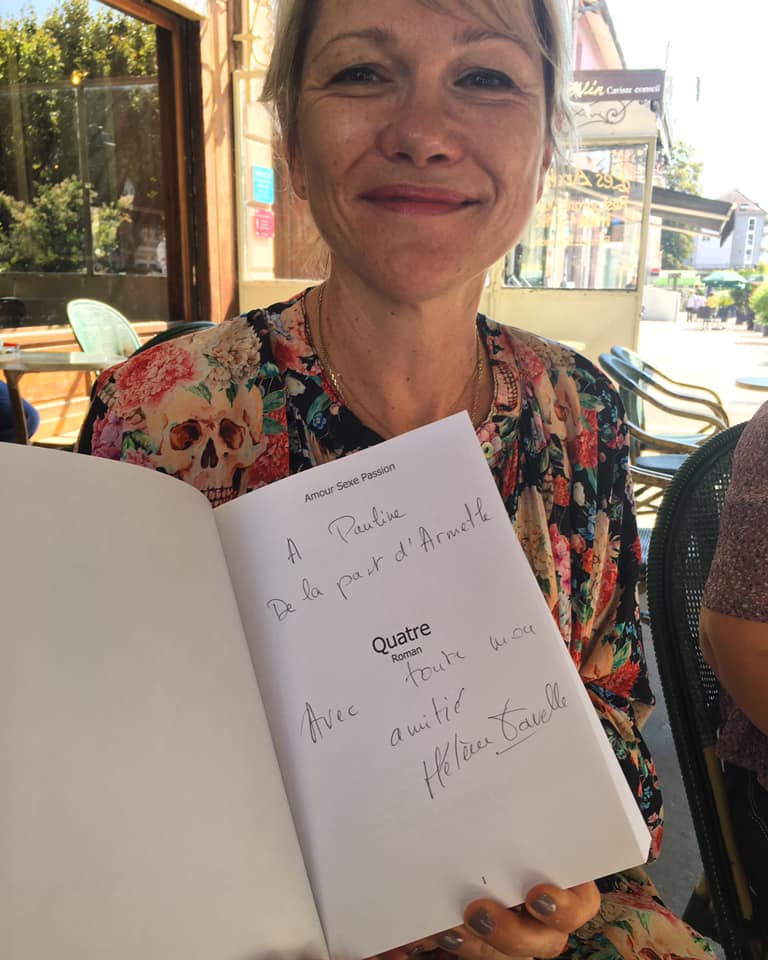 Vin Caviste conseil
Amour Sexe Passion
A Pauline
De la part d'Armelle
Quatre
Roman
Avec toute mon
amitié
Hélène Davelle
1